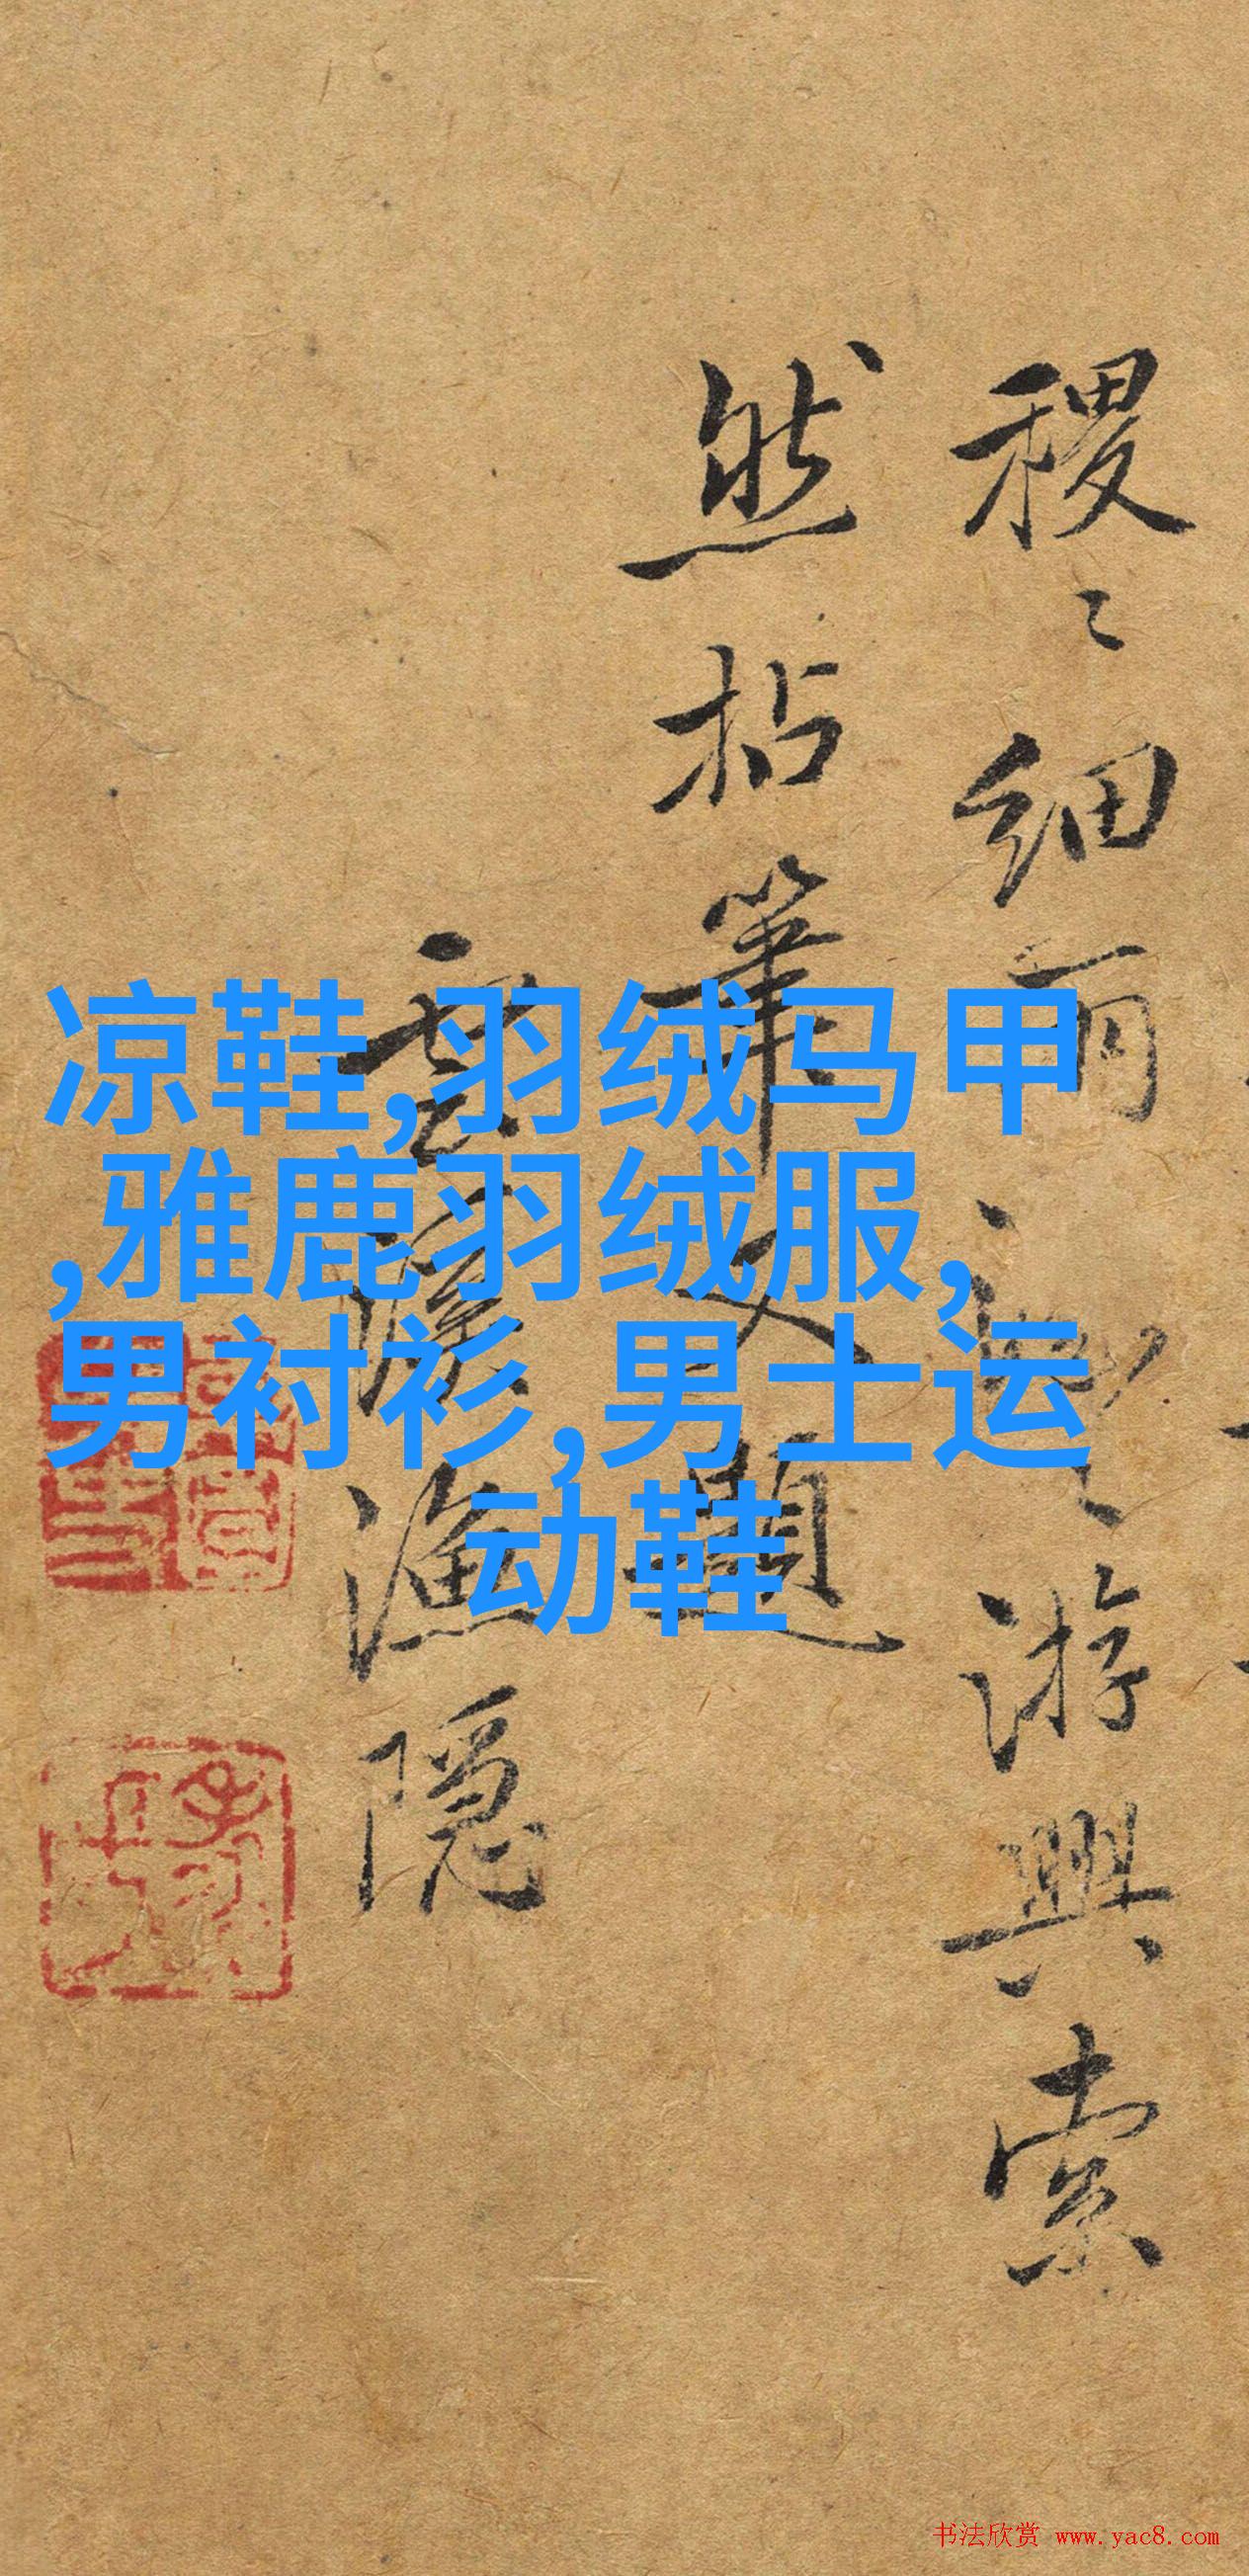 凉鞋,羽绒马甲
,雅鹿羽绒服,
男衬衫,男士运
动鞋
稷〻細雨游興索
然拈筆又題
雲漁隱
书法欣赏 www.yac8.com